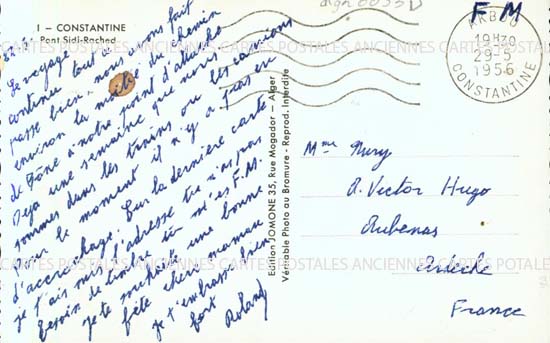 I - CONSTANTINE
Pont Sidi-Rached
Le voyage
continue tout à fait
passe bien, nous avons fait
environ la moitié du chemin
de Bône à notre point d'attache
Déjà une semaine que nous
sommes dans les trains ou les camions
pour le moment il n'y a pas eu
d'accrochage. Sur la dernière carte
je t'ais mis l'adresse tu n'as pas
besoin de timbre tu m'es F.M.
Je te souhaite une bonne
fête chère maman
je t'embrasse bien
fort Roland
Edition JOMONE 35, Rue Mogador - Alger
Véritable Photo au Bromure - Reprod. Interdite
F M
19H30
29-5
1956
CONSTANTINE
Mme
R. Victor Hugo
Aubenas
Ardèche
France
CARTES POSTALES ANCIENNES CARTES POSTALES ANCIENNES CARTES POSTALES